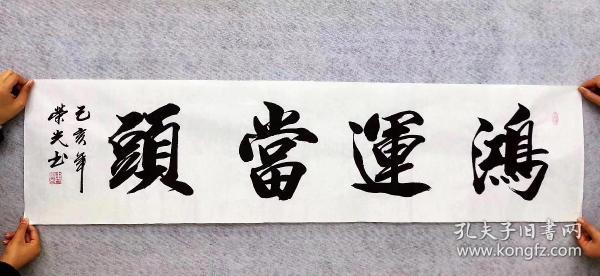 鴻運當頭
己亥年
榮光書
孔夫子旧書网
www.kongfz.com